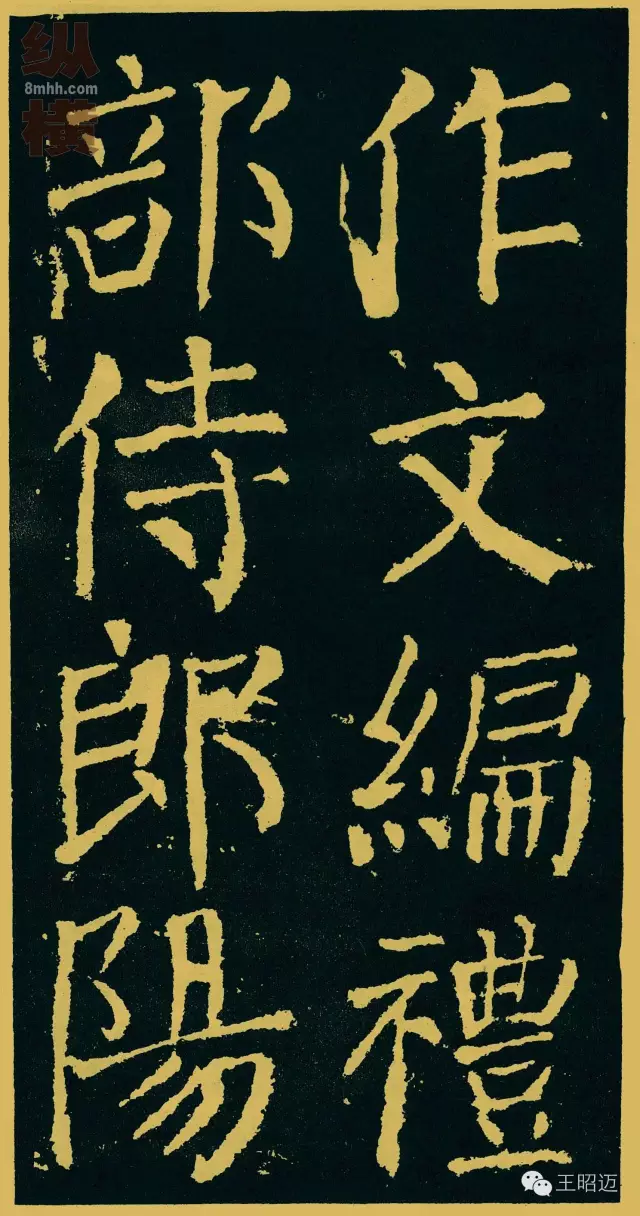 作文編禮
部侍郎陽
纵横
8mhh.com
王昭迈